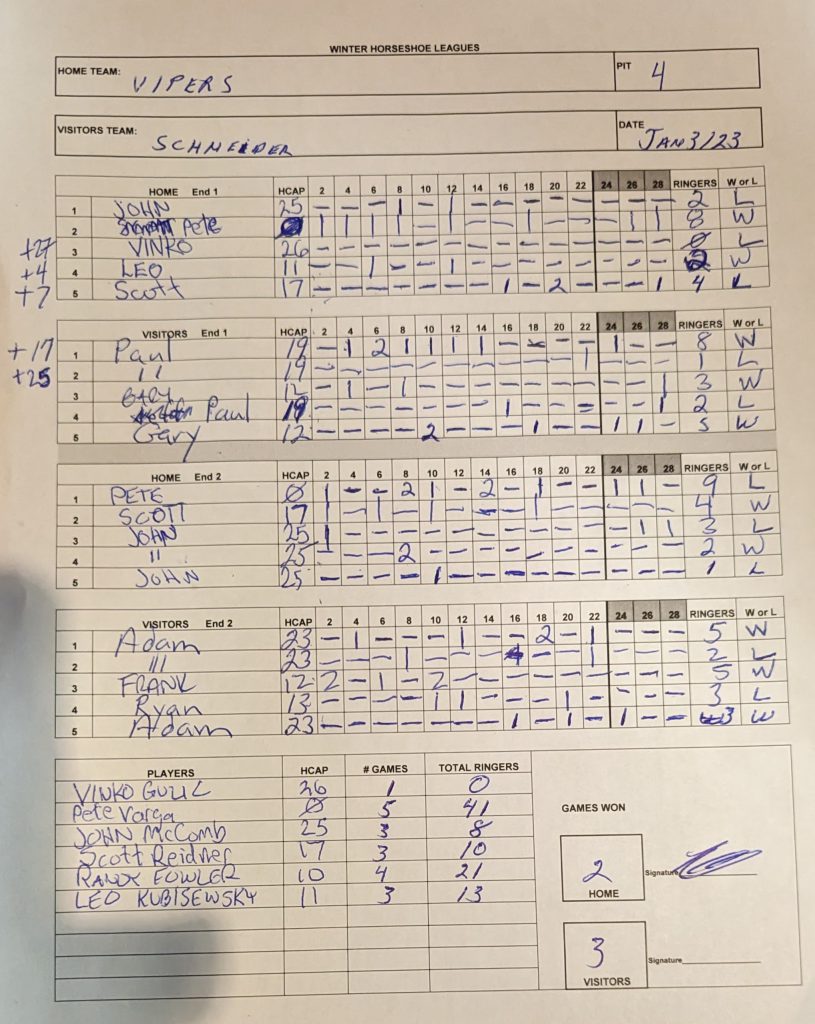 WINTER HORSESHOE LEAGUES
HOME TEAM: VIPERS PIT 4
VISITORS TEAM: SCHNEIDER DATE JAN 3/23
HOME End 1 HCAP 2 4 6 8 10 12 14 16 18 20 22 24 26 28 RINGERS W or L
1 JOHN 25 - - - 1 - 1 - - - - - - - - 2 L
2 Pete 0 1 1 1 1 - 1 - - 1 - - - 1 1 8 W
+27 3 VINKO 26 - - - - - - - - - - - - - - 0 L
+4 4 LEO 11 - - 1 - - 1 - - - - - - - - 2 W
+7 5 Scott 17 - - - - - - - 1 - 2 - - - 1 4 L
VISITORS End 1 HCAP 2 4 6 8 10 12 14 16 18 20 22 24 26 28 RINGERS W or L
+17 1 Paul 19 - 1 2 1 1 1 1 - - - - 1 - - 8 W
+25 2 " 19 - - - - - - - - - - 1 - - - 1 L
3 GARY 12 - 1 - 1 - - - - - - - - - 1 3 W
4 Paul 19 - - - - - - - 1 - - - - - 1 2 L
5 Gary 12 - - - - 2 - - - 1 - - 1 1 - 5 W
HOME End 2 HCAP 2 4 6 8 10 12 14 16 18 20 22 24 26 28 RINGERS W or L
1 PETE 0 1 - - 2 1 - 2 - 1 - - 1 1 - 9 L
2 SCOTT 17 1 - 1 - 1 - - - 1 - - - - - 4 W
3 JOHN 25 1 - - - - - - - - - - - 1 1 3 L
4 " 25 - - - 2 - - - - - - - - - - 2 W
5 JOHN 25 - - - - 1 - - - - - - - - - 1 L
VISITORS End 2 HCAP 2 4 6 8 10 12 14 16 18 20 22 24 26 28 RINGERS W or L
1 Adam 23 - 1 - - - 1 - - 2 - 1 - - - 5 W
2 " 23 - - - 1 - - - - - - 1 - - - 2 L
3 FRANK 12 2 - 1 - 2 - - - - - - - - - 5 W
4 Ryan 13 - - - - 1 1 - - - 1 - - - - 3 L
5 Adam 23 - - - - - - - 1 - 1 - 1 - - 3 W
PLAYERS HCAP # GAMES TOTAL RINGERS
VINKO 26 1 0
Pete Varga 0 5 41
JOHN McComb 25 3 8
Scott 17 3 10
RANDY FOWLER 10 4 21
LEO KUBISEWSKY 11 3 13
GAMES WON
2 Signature
HOME
3 Signature
VISITORS